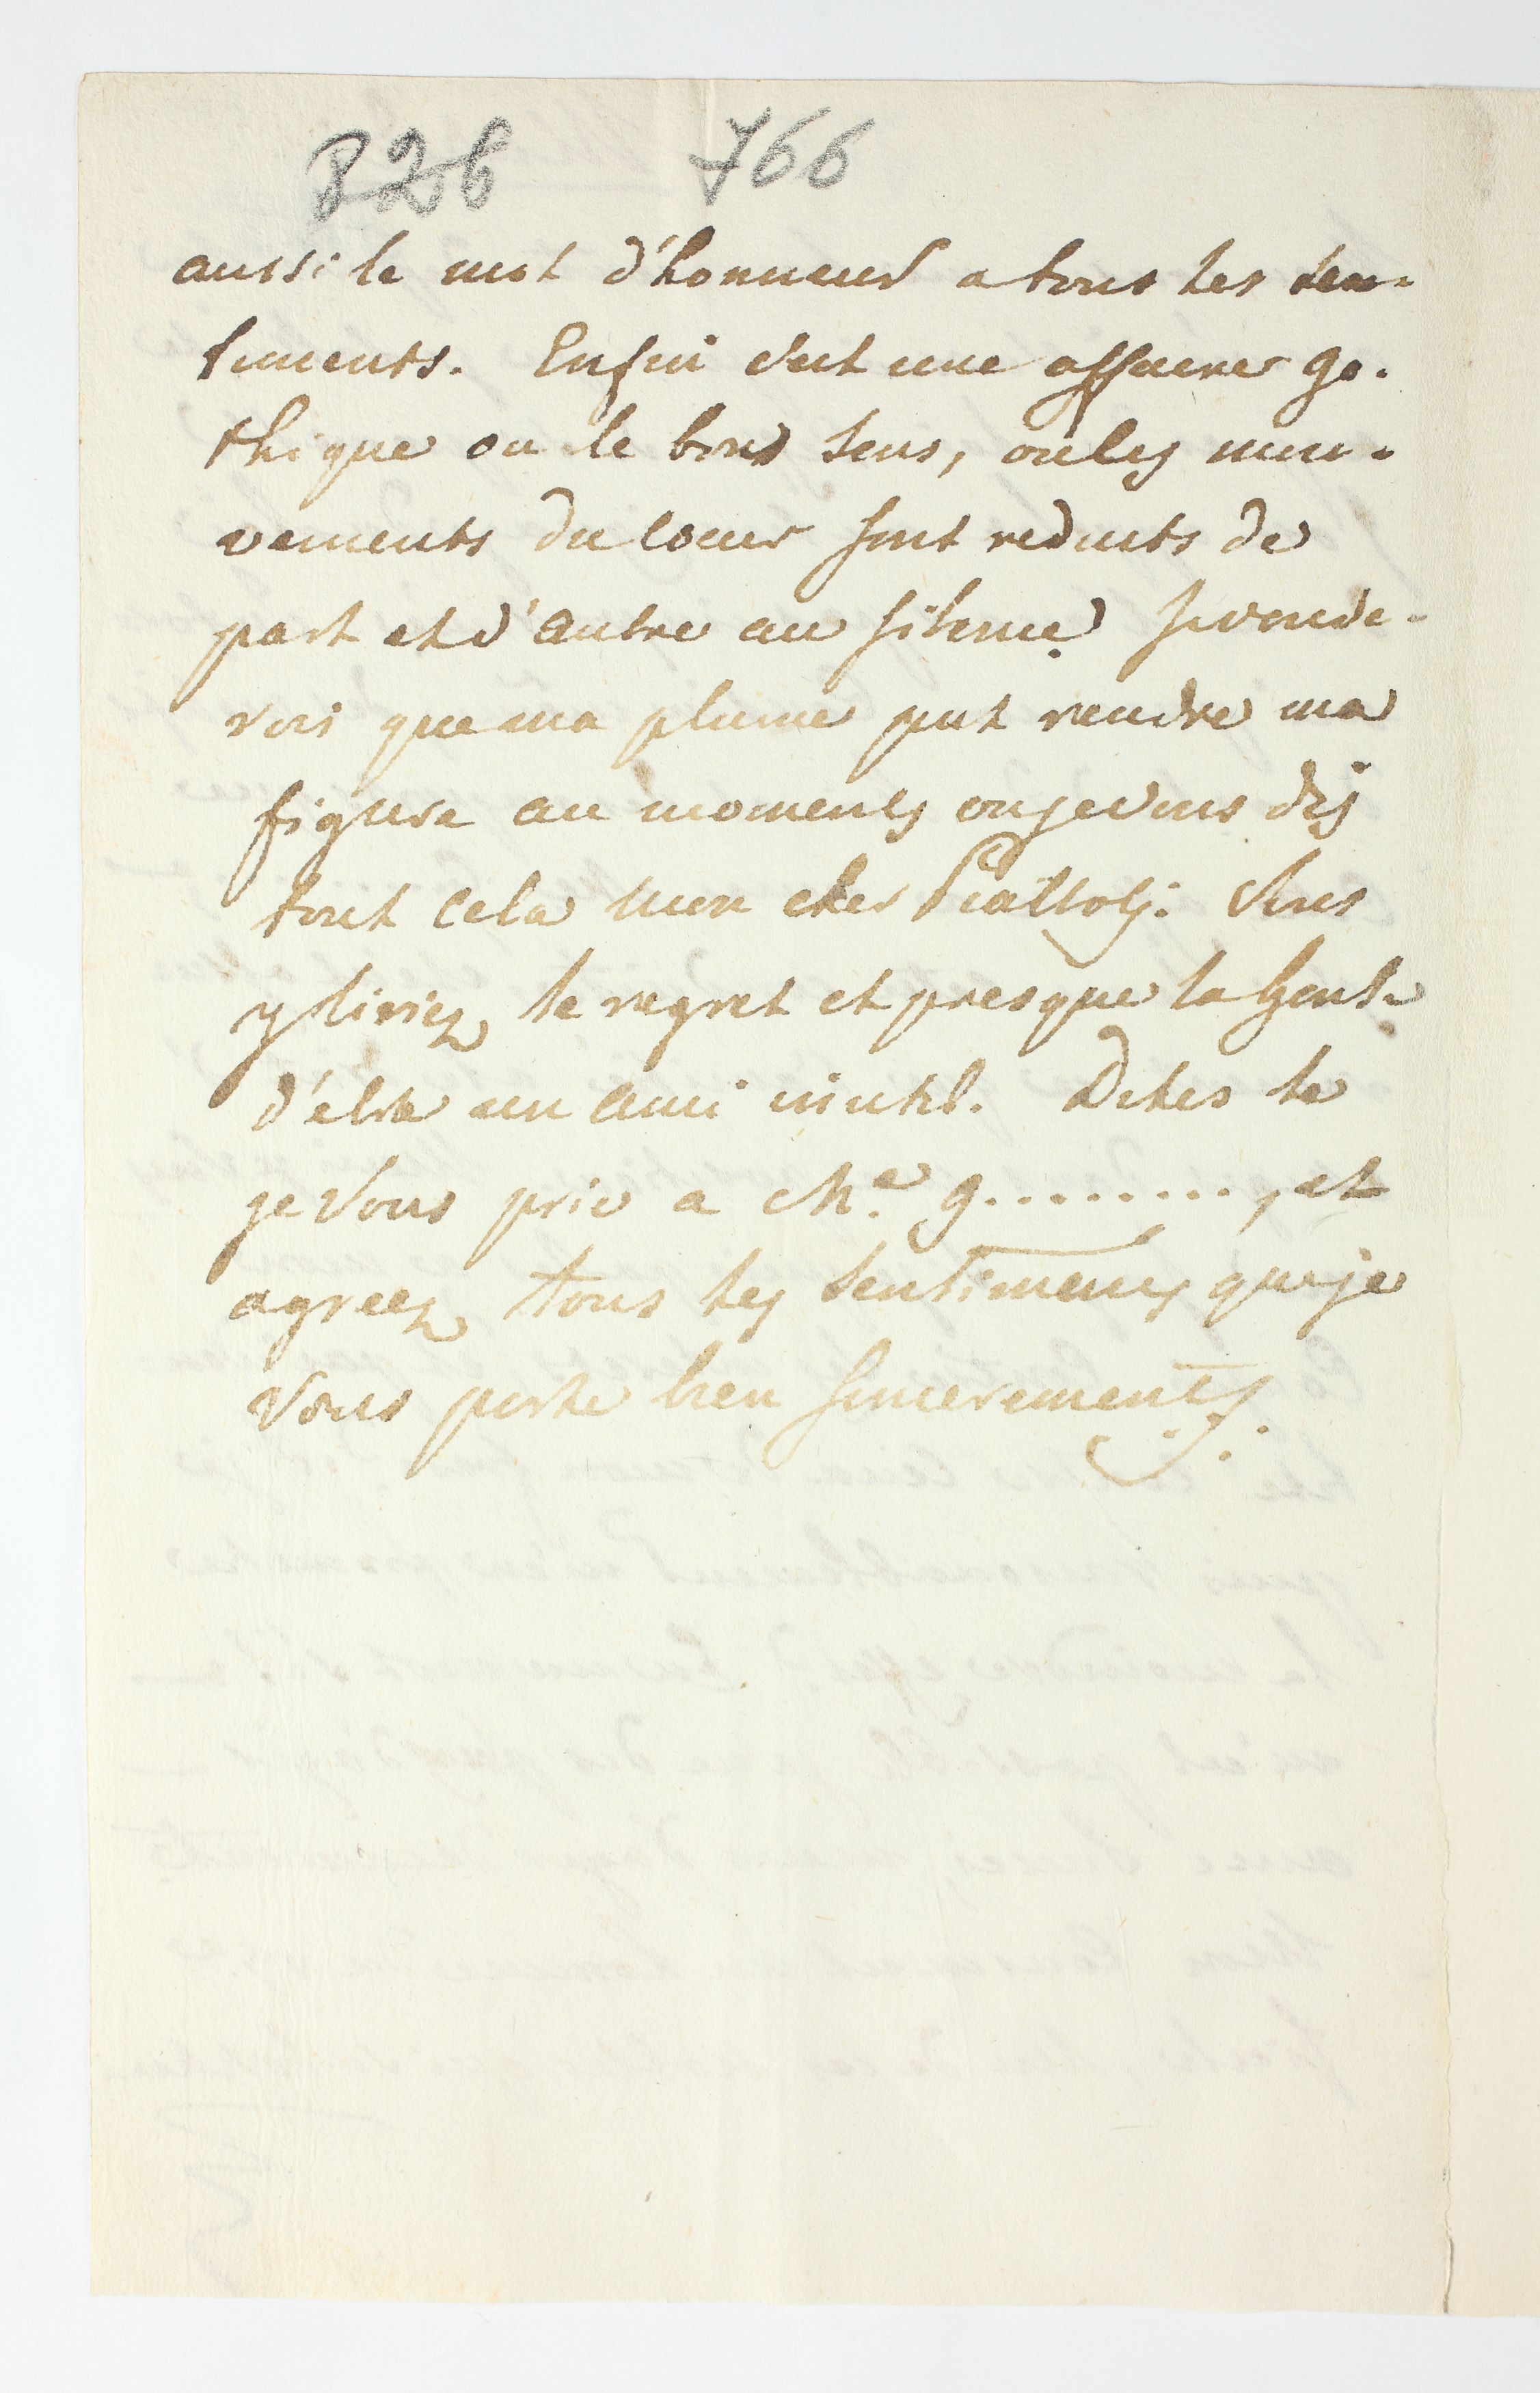 826 766
aussi le mot d'honneur a tous les sen-
timents. Enfin c'est une affaire go-
thique ou le bons sens, ou les mou-
vements du coeur sont reduits de
part et d'autre au silence. Je voude-
rois que ma plume put rendre ma
figure au moments ou je vous dis
tout cela mon cher Piattoli. Vous
y liriez le regret et presque la honte
d'estre un ami inutil. Dites le
je vous prie a Mr. g........., et
agreez tous les sentiments que je
vous porte bien sincerements.